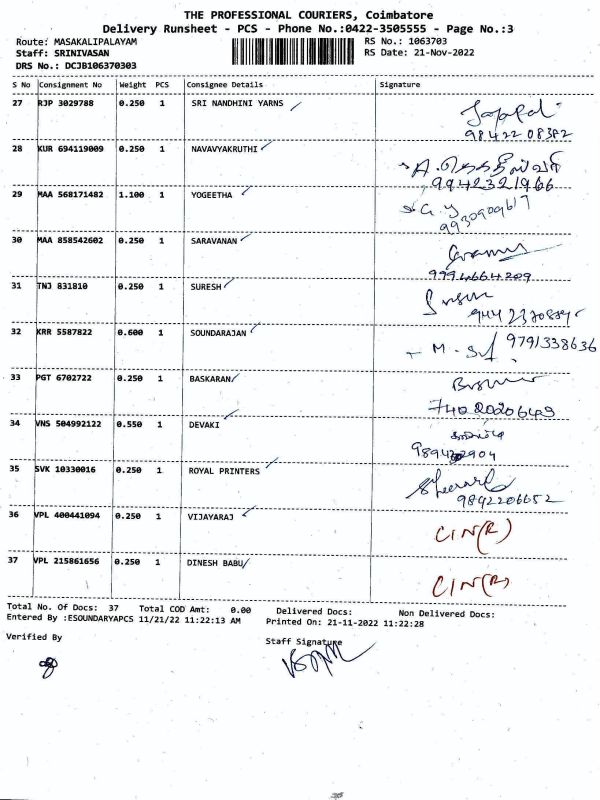 THE PROFESSIONAL COURIERS, Coimbatore
Delivery Runsheet - PCS - Phone No.:0422-3505555 - Page No.:3
Route: MASAKALIPALAYAM RS No.: 1063703
Staff: SRINIVASAN RS Date: 21-Nov-2022
DRS No.: DCJB106370303
S No Consignment No Weight PCS Consignee Details Signature
27 RJP 3029788 0.250 1 SRI NANDHINI YARNS
98422 08382
28 KUR 694119009 0.250 1 NAVAVYAKRUTHI
9942321966
29 MAA 568171482 1.100 1 YOGEETHA
9930909617
30 MAA 858542602 0.250 1 SARAVANAN
9994664209
31 TNJ 831810 0.250 1 SURESH
32 KRR 5587822 0.600 1 SOUNDARAJAN 9791338636
33 PGT 6702722 0.250 1 BASKARAN
7402020649
34 VNS 504992122 0.550 1 DEVAKI
35 SVK 10330016 0.250 1 ROYAL PRINTERS
9842206652
36 VPL 400441094 0.250 1 VIJAYARAJ CIN(R)
37 VPL 215861656 0.250 1 DINESH BABU CIN(R)
Total No. Of Docs: 37 Total COD Amt: 0.00 Delivered Docs: Non Delivered Docs:
Entered By :ESOUNDARYAPCS 11/21/22 11:22:13 AM Printed On: 21-11-2022 11:22:28
Verified By Staff Signature